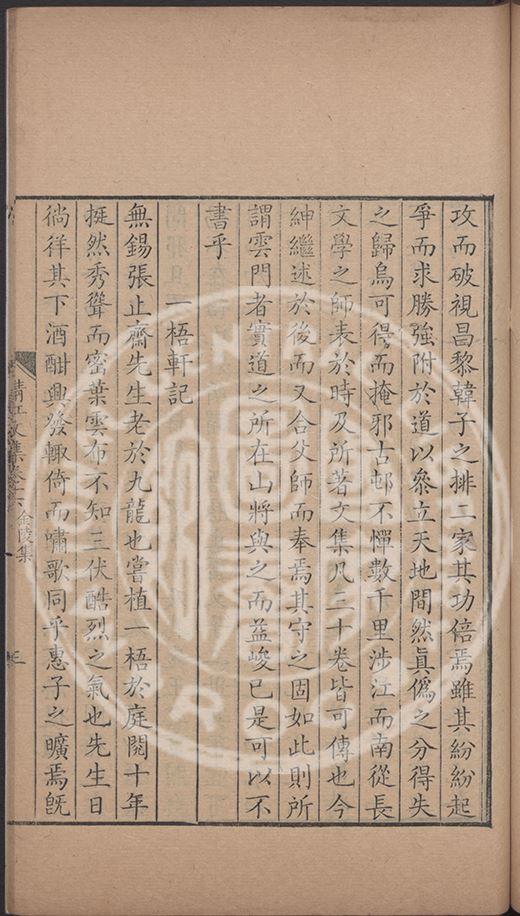 攻而破視昌黎韓子之排二家其功倍焉雖其紛紛起
爭而求勝強附於道以叅立天地間然眞僞之分得失
之歸烏可得而掩邪古邨不憚數千里涉江而南從長
文學之師表於時及所著文集凡三十卷皆可傳也今
紳繼述於後而又合父師而奉焉其守之固如此則所
謂雲門者實道之所在山將與之而益峻已是可以不
書乎
一梧軒記
無錫張止齋先生老於九龍也嘗植一梧於庭閱十年
挺然秀聳而密葉雲布不知三伏酷烈之氣也先生日
徜徉其下酒酣興發輙倚而嘯歌同乎惠子之曠焉旣
清江文集卷 金陵集